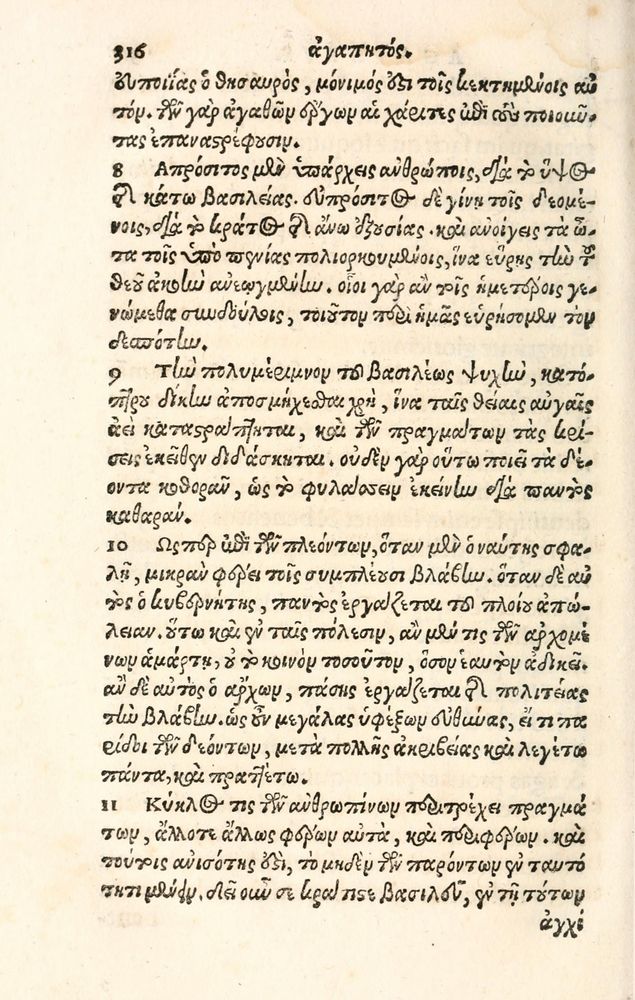 316 ἀγαπητός.
ἐυποιΐας ὁ θησαυρὸς, μόνιμός ὅξι τοῖς κεκτημένοις αυ
τόν. τῶν γὰρ ἀγαθῶν ἔργων αἱ χάριτες ἐπὶ τοὺς ποιοῦν-
τας ἐπαναστρέφουσιν.
8 Απρόσιτος μὲν ὑπάρχεις ανθρώποις, διὰ τὸ ὕψος
τῆς κάτω βασιλείας. ευπρόσιτος δὲ γίνη τοῖς δεομέ-
νοις, διὰ τὸ κράτος τῆς ἄνω ἐξουσίας. καὶ ανοίγεις τὰ ὦ-
τα τοῖς ὑπὸ πενίας πολιορκουμένοις, ἵνα εὕρης τὴν τοῦ
θεοῦ ἀκοὴν ανεωγμένην. οἷοι γὰρ ἂν τοῖς ἡμετέροις γε-
νώμεθα συνδούλοις, τοιοῦτον περὶ ἡμᾶς εὑρήσομεν τὸν
δεσπότην.
9 Τὴν πολυμέριμνον τοῦ βασιλέως ψυχὴν, κατό-
πτρου δίκην ἀποσμήχεσθαι χρὴ, ἵνα ταῖς θείαις αυγαῖς
ἀεὶ καταστράπτηται, καὶ τῶν πραγμάτων τὰς κρί-
σεις ἐκεῖθεν διδάσκηται. ουδὲν γὰρ οὕτω ποιεῖ τὰ δέ-
οντα καθορᾶν, ὡς τὸ φυλάσσειν ἐκείνην διὰ παντὸς
καθαράν.
10 Ωσπερ ἐπὶ τῶν πλεόντων, ὅταν μὲν ὁ ναύτης σφα-
λῇ, μικρὰν φέρει τοῖς συμπλέουσι βλάβην. ὅταν δὲ αυ
τὸς ὁ κυβερνήτης, παντὸς ἐργάζεται τοῦ πλοίου ἀπώ-
λειαν. οὕτω καὶ ἐν ταῖς πόλεσιν, ἂν μέν τις τῶν ἀρχομέ
νων ἁμάρτῃ, οὐ τὸ κοινὸν τοσοῦτον, ὅσον ἑαυτὸν ἀδικεῖ.
ἂν δὲ αυτὸς ὁ ἄρχων, πάσης ἐργάζεται τῆς πολιτείας
τὴν βλάβην. ὡς οὖν μεγάλας ὑφέξων ευθύνας, εἴ τι πα
ρίδοι τῶν δεόντων, μετὰ πολλῆς ἀκριβείας καὶ λεγέτω
πάντα, καὶ πραττέτω.
11 Κύκλος τις τῶν ανθρωπίνων περιτρέχει πραγμά
των, ἄλλοτε ἄλλως φέρων αυτὰ, καὶ περιφέρων. καὶ
τούτοις ανισότης ἐστὶ, τὸ μηδὲν τῶν παρόντων ἐν ταυτό
τητι μένειν. δεῖ οὖν σε κράτιστε βασιλεῦ, ἐν τῇ τούτων
ἀγχί